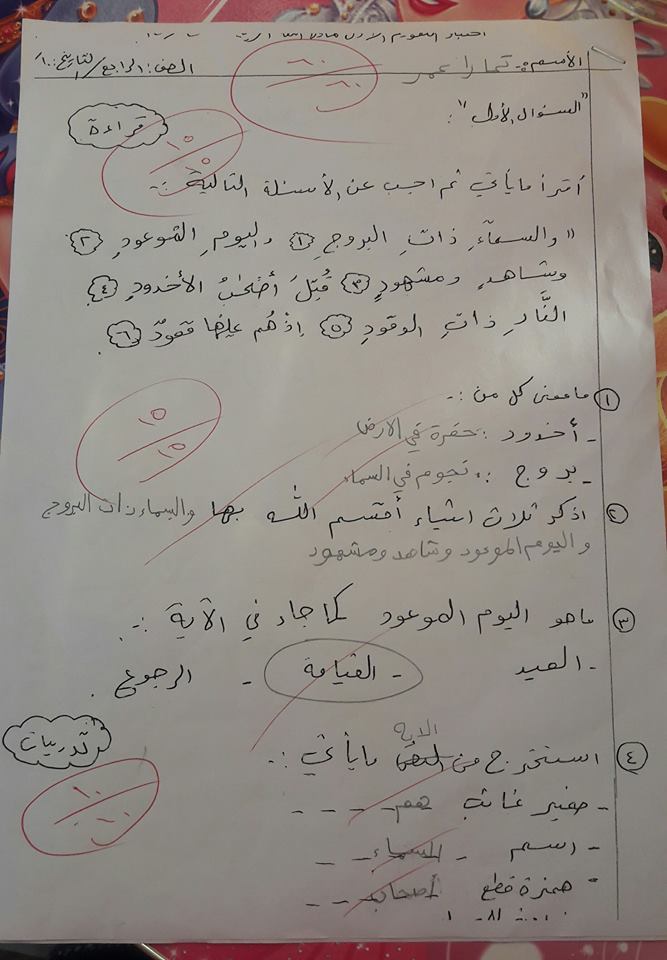 اختبار التقويم الأول لمادة اللغة العربية
الأسم :- تمارا عمر الصف : الرابع / التاريخ : / ١٠
٦٠
٦٠
"السؤال الأول" :
قراءة
١٥
١٥
أقرأ ما يأتي ثم اجب عن الأسئلة التالية :-
" والسمآءِ ذاتِ البروجِ (١) واليومِ الموعودِ (٢)
وشاهدٍ ومشهودٍ (٣) قُتِلَ أصْحٰبُ الأخدودِ (٤)
النَّارِ ذاتِ الوقودِ (٥) إذْ هُم عليها قعودٌ (٦)
١ ما معنى كل من :-
- أخدود : حفرة في الارض
- بروج : نجوم في السماء
١٥
١٥
٢ اذكر ثلاث اشياء أقسم الله بها والسماء ذات البروج
واليوم الموعود وشاهد ومشهود
٣ ماهو اليوم الموعود كما جاء في الآية :-
- العيد - القيامة - الرجوع .
تدريبات
١٠
١٠
٤ استخرج من النص الايه مايأتي :-
- ضمير غائب هم - - -
- اسم - السماء - -
- همزة قطع أصحاب - -